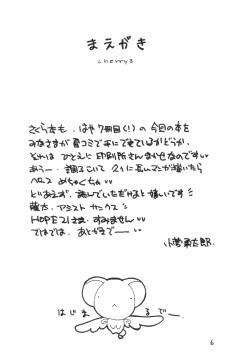 まえがき
cherry3
さくら本も、はや7冊目(!)の今回の本を
みなさまが夏コミで手にできているかどうか、
それは ひとえに 印刷所さんまかせなのです♥♥
あうー、調子こいて 久々に長いマンガ描いたら
ペース めちゃくちゃ♥♥
とりあえず、読んでいただけると嬉しいです
アシスト サンクス
HOPE21さま、すみません♥♥
ではでは、あとがきでー♥♥
はじま
るでー
6